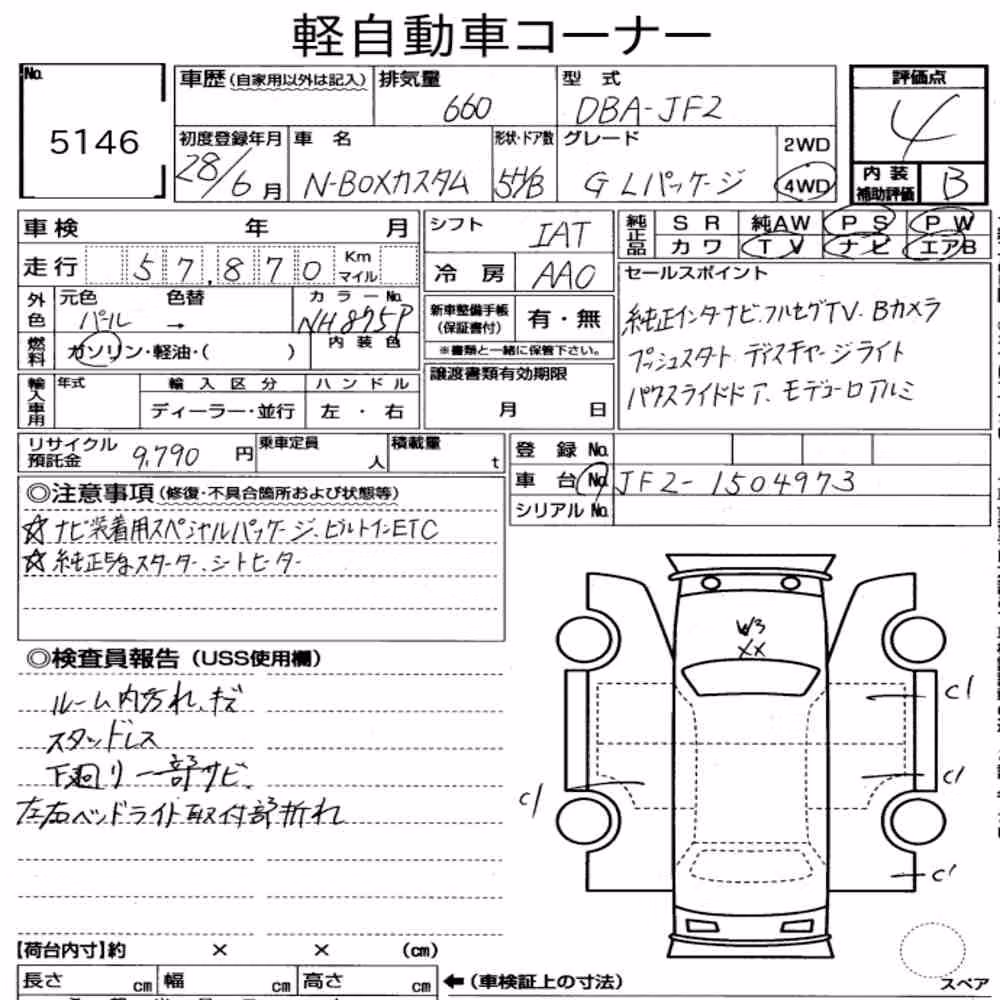 軽自動車コーナー
No.
5146
車歴(自家用以外は記入)
排気量
660
型式
DBA-JF2
評価点
4
初度登録年月
28/6月
車名
N-BOXカスタム
形状・ドア数
5H/B
グレード
G Lパッケージ
2WD
4WD
内装
補助評価
B
車検 年 月
シフト
IAT
純正品
SR 純AW PS PW
カワ TV ナビ エアB
走行 57,870 Km
マイル
冷房 AAC
セールスポイント
外色
元色 色替
パール →
カラーNo.
NH875P
内装色
新車整備手帳
(保証書付)
有・無
※書類と一緒に保管下さい。
純正インターナビ.フルセグTV.Bカメラ
プッシュスタート ディスチャージライト
パワースライドドア.モデューロアルミ
燃料
ガソリン・軽油・( )
輸入車用
年式
輸入区分
ハンドル
ディーラー・並行
左・右
譲渡書類有効期限
月 日
リサイクル
預託金
9,790 円
乗車定員
人
積載量
t
登録No.
車台No.
JF2-1504973
シリアルNo.
◎注意事項(修復・不具合箇所および状態等)
☆ナビ装着用スペシャルパッケージ、ビルトインETC
☆純正スターター、シートヒーター
◎検査員報告(USS使用欄)
ルーム内汚れ、キズ
スタッドレス
下廻り一部サビ
左右ヘッドライト取付部折れ
W3
XX
C1
C1
C1
C1
【荷台内寸】約 × × (cm)
長さ cm 幅 cm 高さ cm
←(車検証上の寸法)
スペア